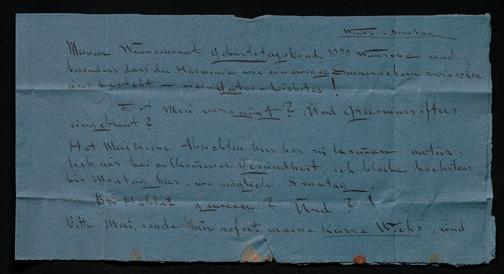 Meinem Wonnemonat Geburtstagskind 1000 Wünsche und
besonders dass die Harmonie wie ein ewiger Sonnenschein zwischen
uns besteht – mein Gutes – Liebstes!
Ist Mai vergnügt? Und
eingebaut?
Hat Mai keine Absichten hierher zu kommen natür-
lich nur bei vollkommener Gesundheit, ich bleibe höchstens
bis Montag hier, wo möglich Sonntag.
Bei gewesen? Und? !
Bitte Mai, sende mir sofort, meine und